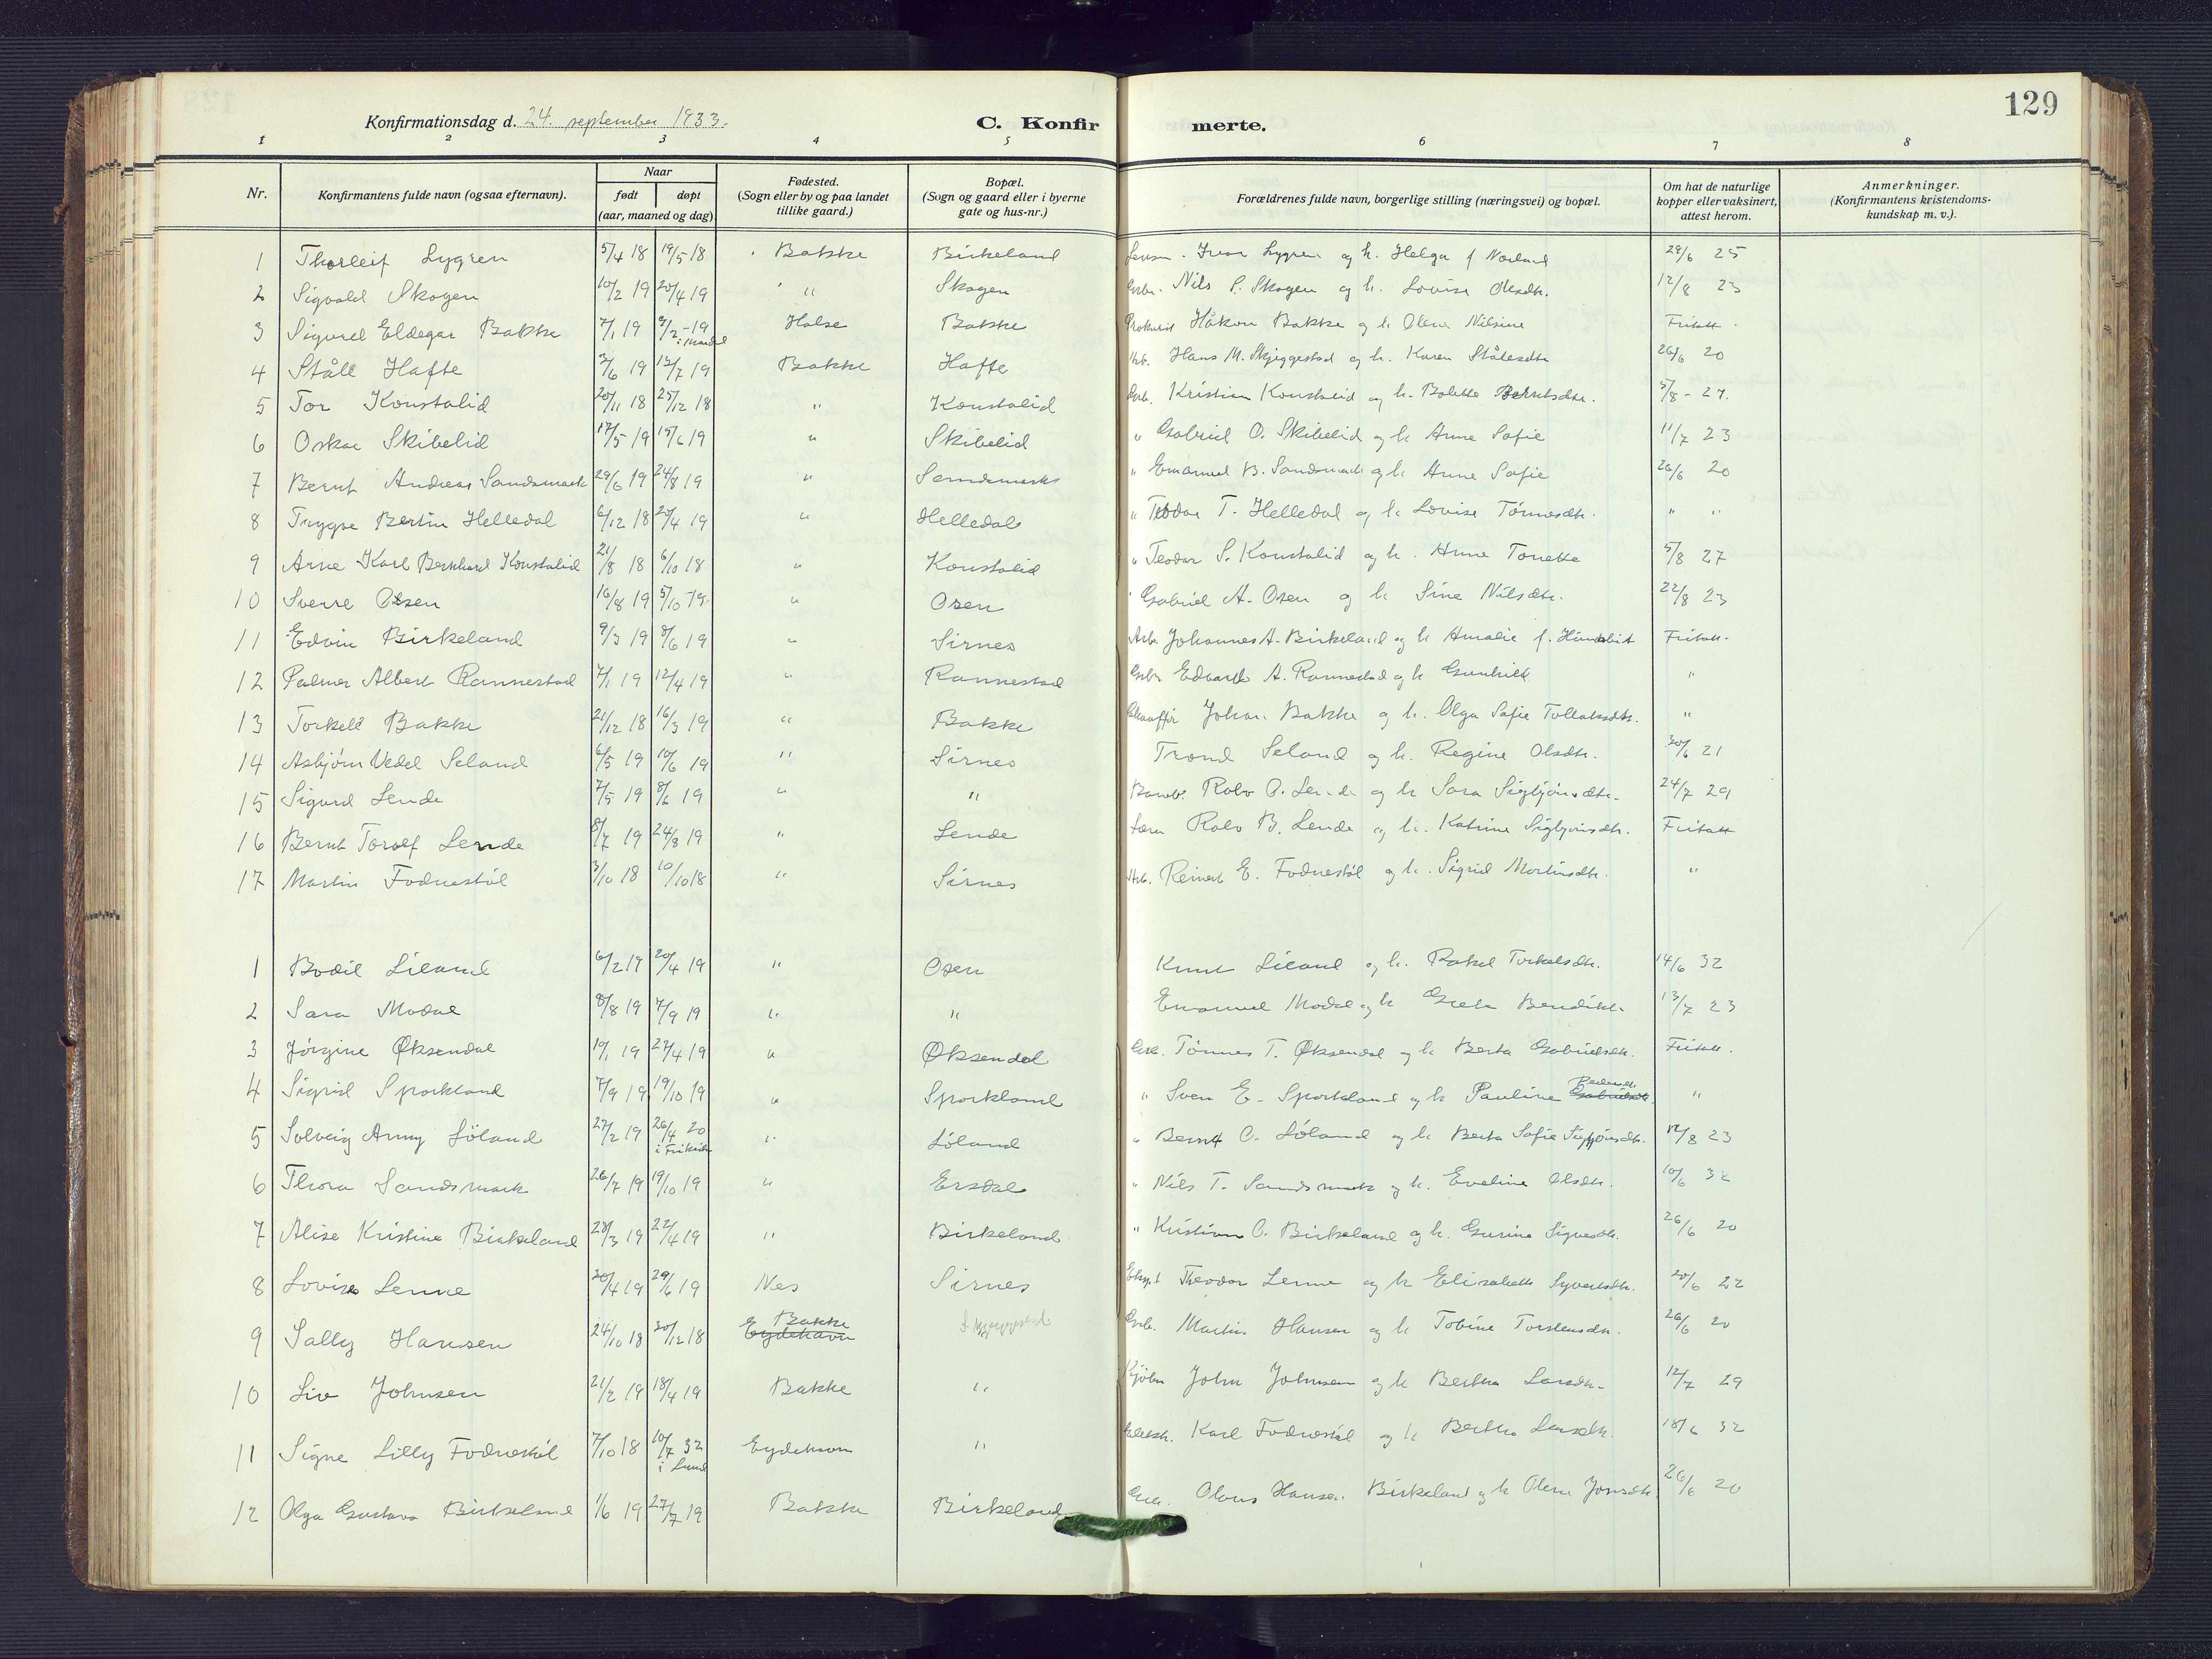 129
Konfirmationsdag d. 24. september 1933.
C. Konfirmerte.
1 2 3 4 5 6 7 8
Nr. Konfirmantens fulde navn (ogsaa efternavn). Naar født døpt (aar, maaned og dag) Fødested. (Sogn eller by og paa landet tillike gaard.) Bopæl. (Sogn og gaard eller i byerne gate og hus-nr.) Forældrenes fulde navn, borgerlige stilling (næringsvei) og bopæl. Om hat de naturlige kopper eller vaksinert, attest herom. Anmerkninger. (Konfirmantens kristendomskundskap m. v.).
1 Thorleif Lygren 5/4 18 19/5 18 Bakke Birkeland Lygren og h. Helga f 29/6 25
2 Sigvald Skogen 10/2 19 20/4 19 " Skogen Nils S. Skogen og h. Lovise Olsdtr. 12/8 23
3 Sigurd Eldegar Bakke 7/1 19 9/2 -19 i Mandal Halse Bakke Prokurist Håkon Bakke og h Olene Nilsine Fritatt.
4 Ståle Hafte 3/6 19 12/7 19 Bakke Hafte Arb. Hans M. Skjeggestad og h. Karen Ståledtr 26/6 20
5 Tor Konstalid 20/11 18 25/12 18 " Konstalid Grb. Kristian Konstalid og h. Bolette Berntsdtr. 5/8 - 27.
6 Oskar Skibelid 17/5 19 15/6 19 " Skibelid " Gabriel O. Skibelid og h Anne Sofie 11/7 23
7 Bernt Andreas Sandsmark 29/6 19 24/8 19 " Sandsmark " Emanuel B. Sandsmark og h. Anne Sofie 26/6 20
8 Trygve Bertin Helledal 6/12 18 20/4 19 " Helledal " Teodor T. Helledal og h. Lovise Tønnesdtr. " "
9 Arne Karl Bernhard Konstalid 21/8 18 6/10 18 " Konstalid " Teodor S. Konstalid og h. Anne Tonette 5/8 27
10 Sverre Osen 16/8 19 5/10 19 " Osen " Gabriel A. Osen og h Sine Nilsdtr. 22/8 23
11 Edvin Birkeland 9/3 19 8/6 19 " Sirnes Arb. Johannes A. Birkeland og h Amalie f. Fritatt.
12 Palmer Albert Rannestad 7/1 19 12/4 19 " Rannestad Grbr Edvard A. Rannestad og h Gunhild "
13 Torkell Bakke 21/12 18 16/3 19 " Bakke Chauffør Johan Bakke og h. Olga Sofie Tollaksdtr. "
14 Asbjørn Vedel Seland 6/5 19 10/6 19 " Sirnes Trond Seland og h. Regine Olsdtr. 30/6 21
15 Sigurd Lende 7/5 19 8/6 19 " " Rolv O. Lende og h Sara Sigbjørnsdtr. 24/7 29
16 Bernt Torolf Lende 8/7 19 24/8 19 " Lende Lærer Rolv B. Lende og h. Katrine Sigbjørnsdtr. Fritatt
17 Martin Fodnestøl 3/10 18 10/10 18 " Sirnes Arb. Reinert E. Fodnestøl og h. Sigrid Martinsdtr. "
1 Bodil Liland 6/2 19 20/4 19 " Osen Knut Liland og h. Rakel Torkelsdtr. 14/6 32
2 Sara Modal 8/8 19 7/9 19 " " Emanuel Modal og h Bendiksdtr 13/7 23
3 Jørgine Øksendal 19/1 19 27/4 19 " Øksendal Grb. Tønnes T. Øksendal og h Berta Gabrielsdtr. Fritatt.
4 Sigrid Sporkland 7/9 19 19/10 19 " Sporkland " Sven E. Sporkland og h Pauline Pedersdtr. Gabrielsdtr. "
5 Solveig Anny Løland 27/2 19 26/4 20 i Frikirk " Løland " Bernt C. Løland og h Berta Sofie Sigbjørnsdtr. 12/8 23
6 Thora Sandsmark 26/7 19 19/10 19 " Ersdal " Nils T. Sandsmark og h. Eveline Olsdtr. 10/6 32
7 Alise Kristine Birkeland 28/3 19 22/4 19 " Birkeland " Kristian O. Birkeland og h. Gurine Sigvesdtr. 26/6 20
8 Lovise Lenne 20/4 19 29/6 19 Nes Sirnes Eksp. Theodor Lenne og h Elisabeth Syvertsdtr. 20/6 22
9 Sally Hansen 24/10 18 30/12 18 Bakke Eydehavn Grb. Martin Hansen og h Tobine Torstensdtr. 26/6 20
10 Liv Johnsen 21/2 19 18/4 19 Bakke " Kjøbm John Johnsen og h Bertha Larsdtr. 12/7 29
11 Signe Lilly Fodnestøl 7/10 18 10/7 32 i Lund Eydehavn " Karl Fodnestøl og h Bertha Larsdtr. 18/6 32
12 Olga Gustava Birkeland 1/6 19 27/7 19 Bakke Birkeland Grb. Olaus Hansen Birkeland og h Olene Jonsdtr. 26/6 20